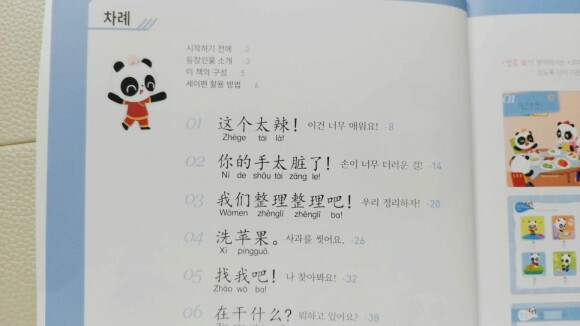 차례
시작하기 전에 ·2
등장인물 소개 ·3
이 책의 구성 ·5
세이펜 활용 방법 ·6
01 这个太辣！ 이건 너무 매워요! ·8
Zhège tài là!
02 你的手太脏了！ 손이 너무 더러운 걸! ·14
Nǐ de shǒu tài zāng le!
03 我们整理整理吧！ 우리 정리하자! ·20
Wǒmen zhěnglǐ zhěnglǐ ba!
04 洗苹果。 사과를 씻어요. ·26
Xǐ píngguǒ.
05 找我吧！ 나 찾아봐요! ·32
Zhǎo wǒ ba!
06 在干什么？ 뭐하고 있어요? ·38
01